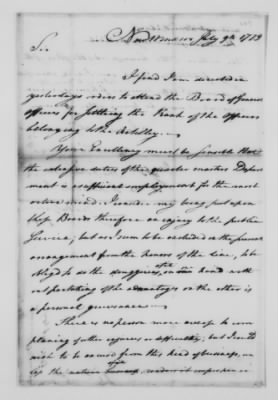 New Windsor July 9th 1779
Sir.
I find I am directed in
yesterdays orders to attend the Board of General
officers for settling the Rank of the officers
belonging to the Artillery.
Your Excellency must be sensible that
the extensive duties of the quarter masters Depart
ment is a sufficient employment for the most
active mind. I consider my being put upon
these Boards therefore an injury to the public
Service; but as I am to be excluded in the present
arrangement from the honors of the line, to be
obliged to do the drudgery, on the one hand with
out partaking of the advantages on the other is
a personal grievance.
There is no person more averse to com
plaining of either injuries or difficulty, but I could
wish to be excused from this kind of business, un
less the nature renders it